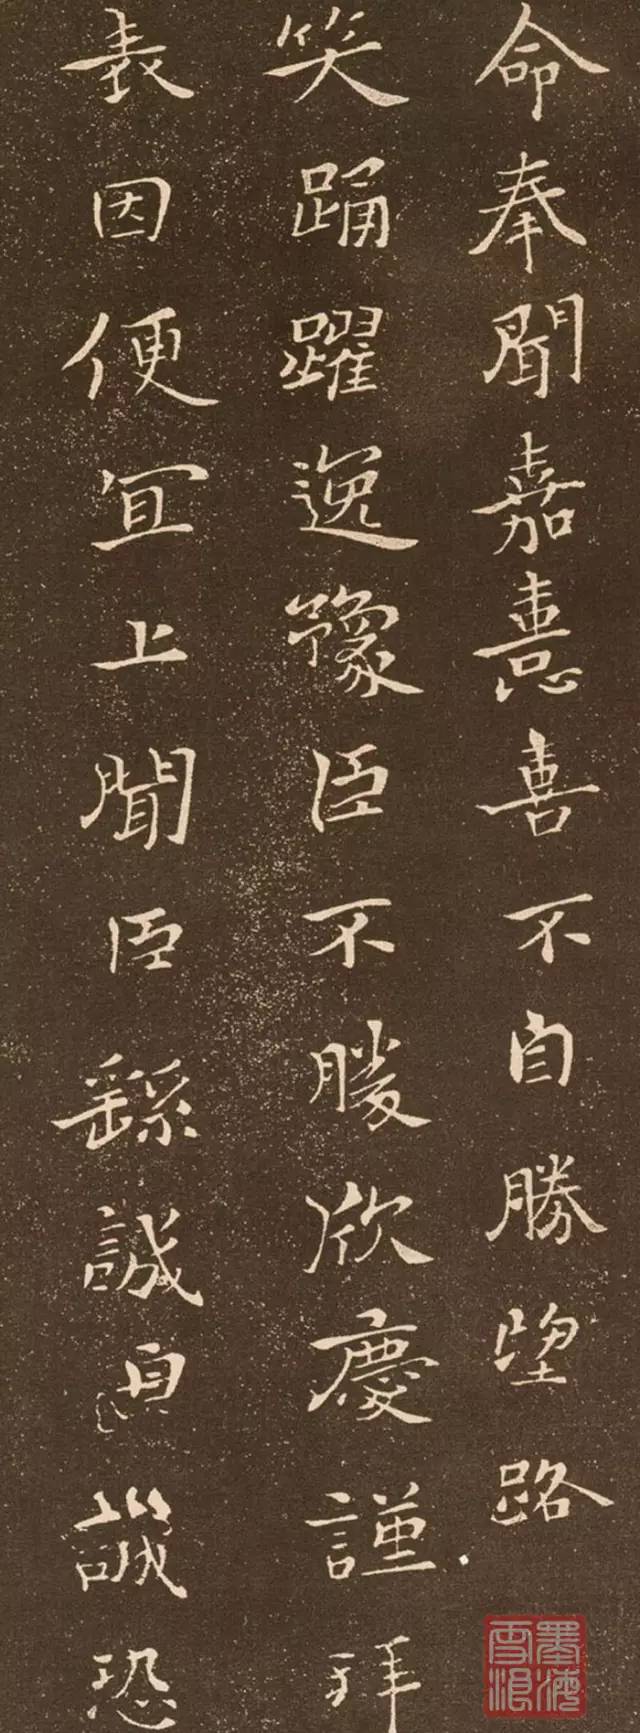 命奉聞嘉憙喜不自勝望路
笑踊躍逸豫臣不勝欣慶謹拜
表因便冝上聞臣繇誠誠恐
墨海
雪浪